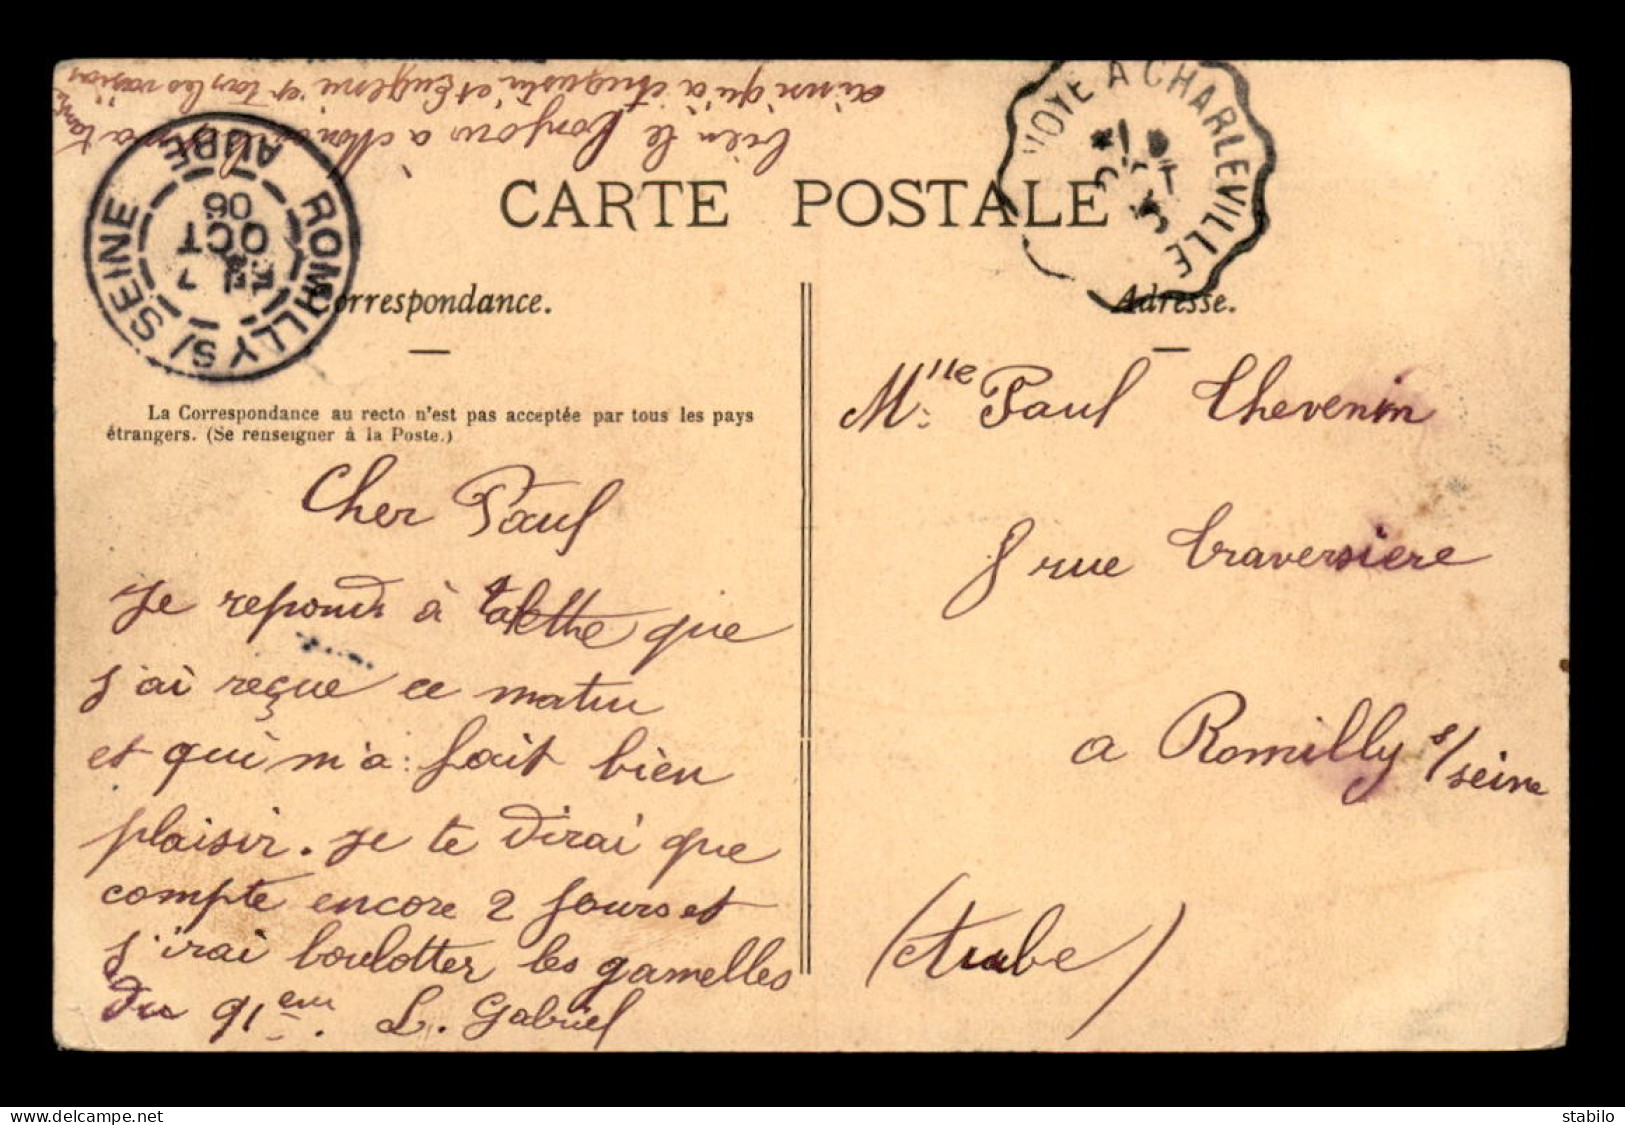 bien le bonjour à
ainsi qu'à Augustin et Eugénie et tous les voisins
CARTE POSTALE
ROMILLY S/ SEINE
AUBE
7
OCT
06
NOYE A CHARLEVILLE
Correspondance.
Adresse.
La Correspondance au recto n'est pas acceptée par tous les pays
étrangers. (Se renseigner à la Poste.)
Cher Paul
Je repond à ta lettre que
j'ai reçue ce matin
et qui m'a fait bien
plaisir. Je te dirai que
compte encore 2 jours et
j'irai boulotter les gamelles
du 91eme. L. Gabriel
Mlle Paul Thevenin
8 rue Traversiere
a Romilly s/seine
(Aube)
delcampe.net
stabilo